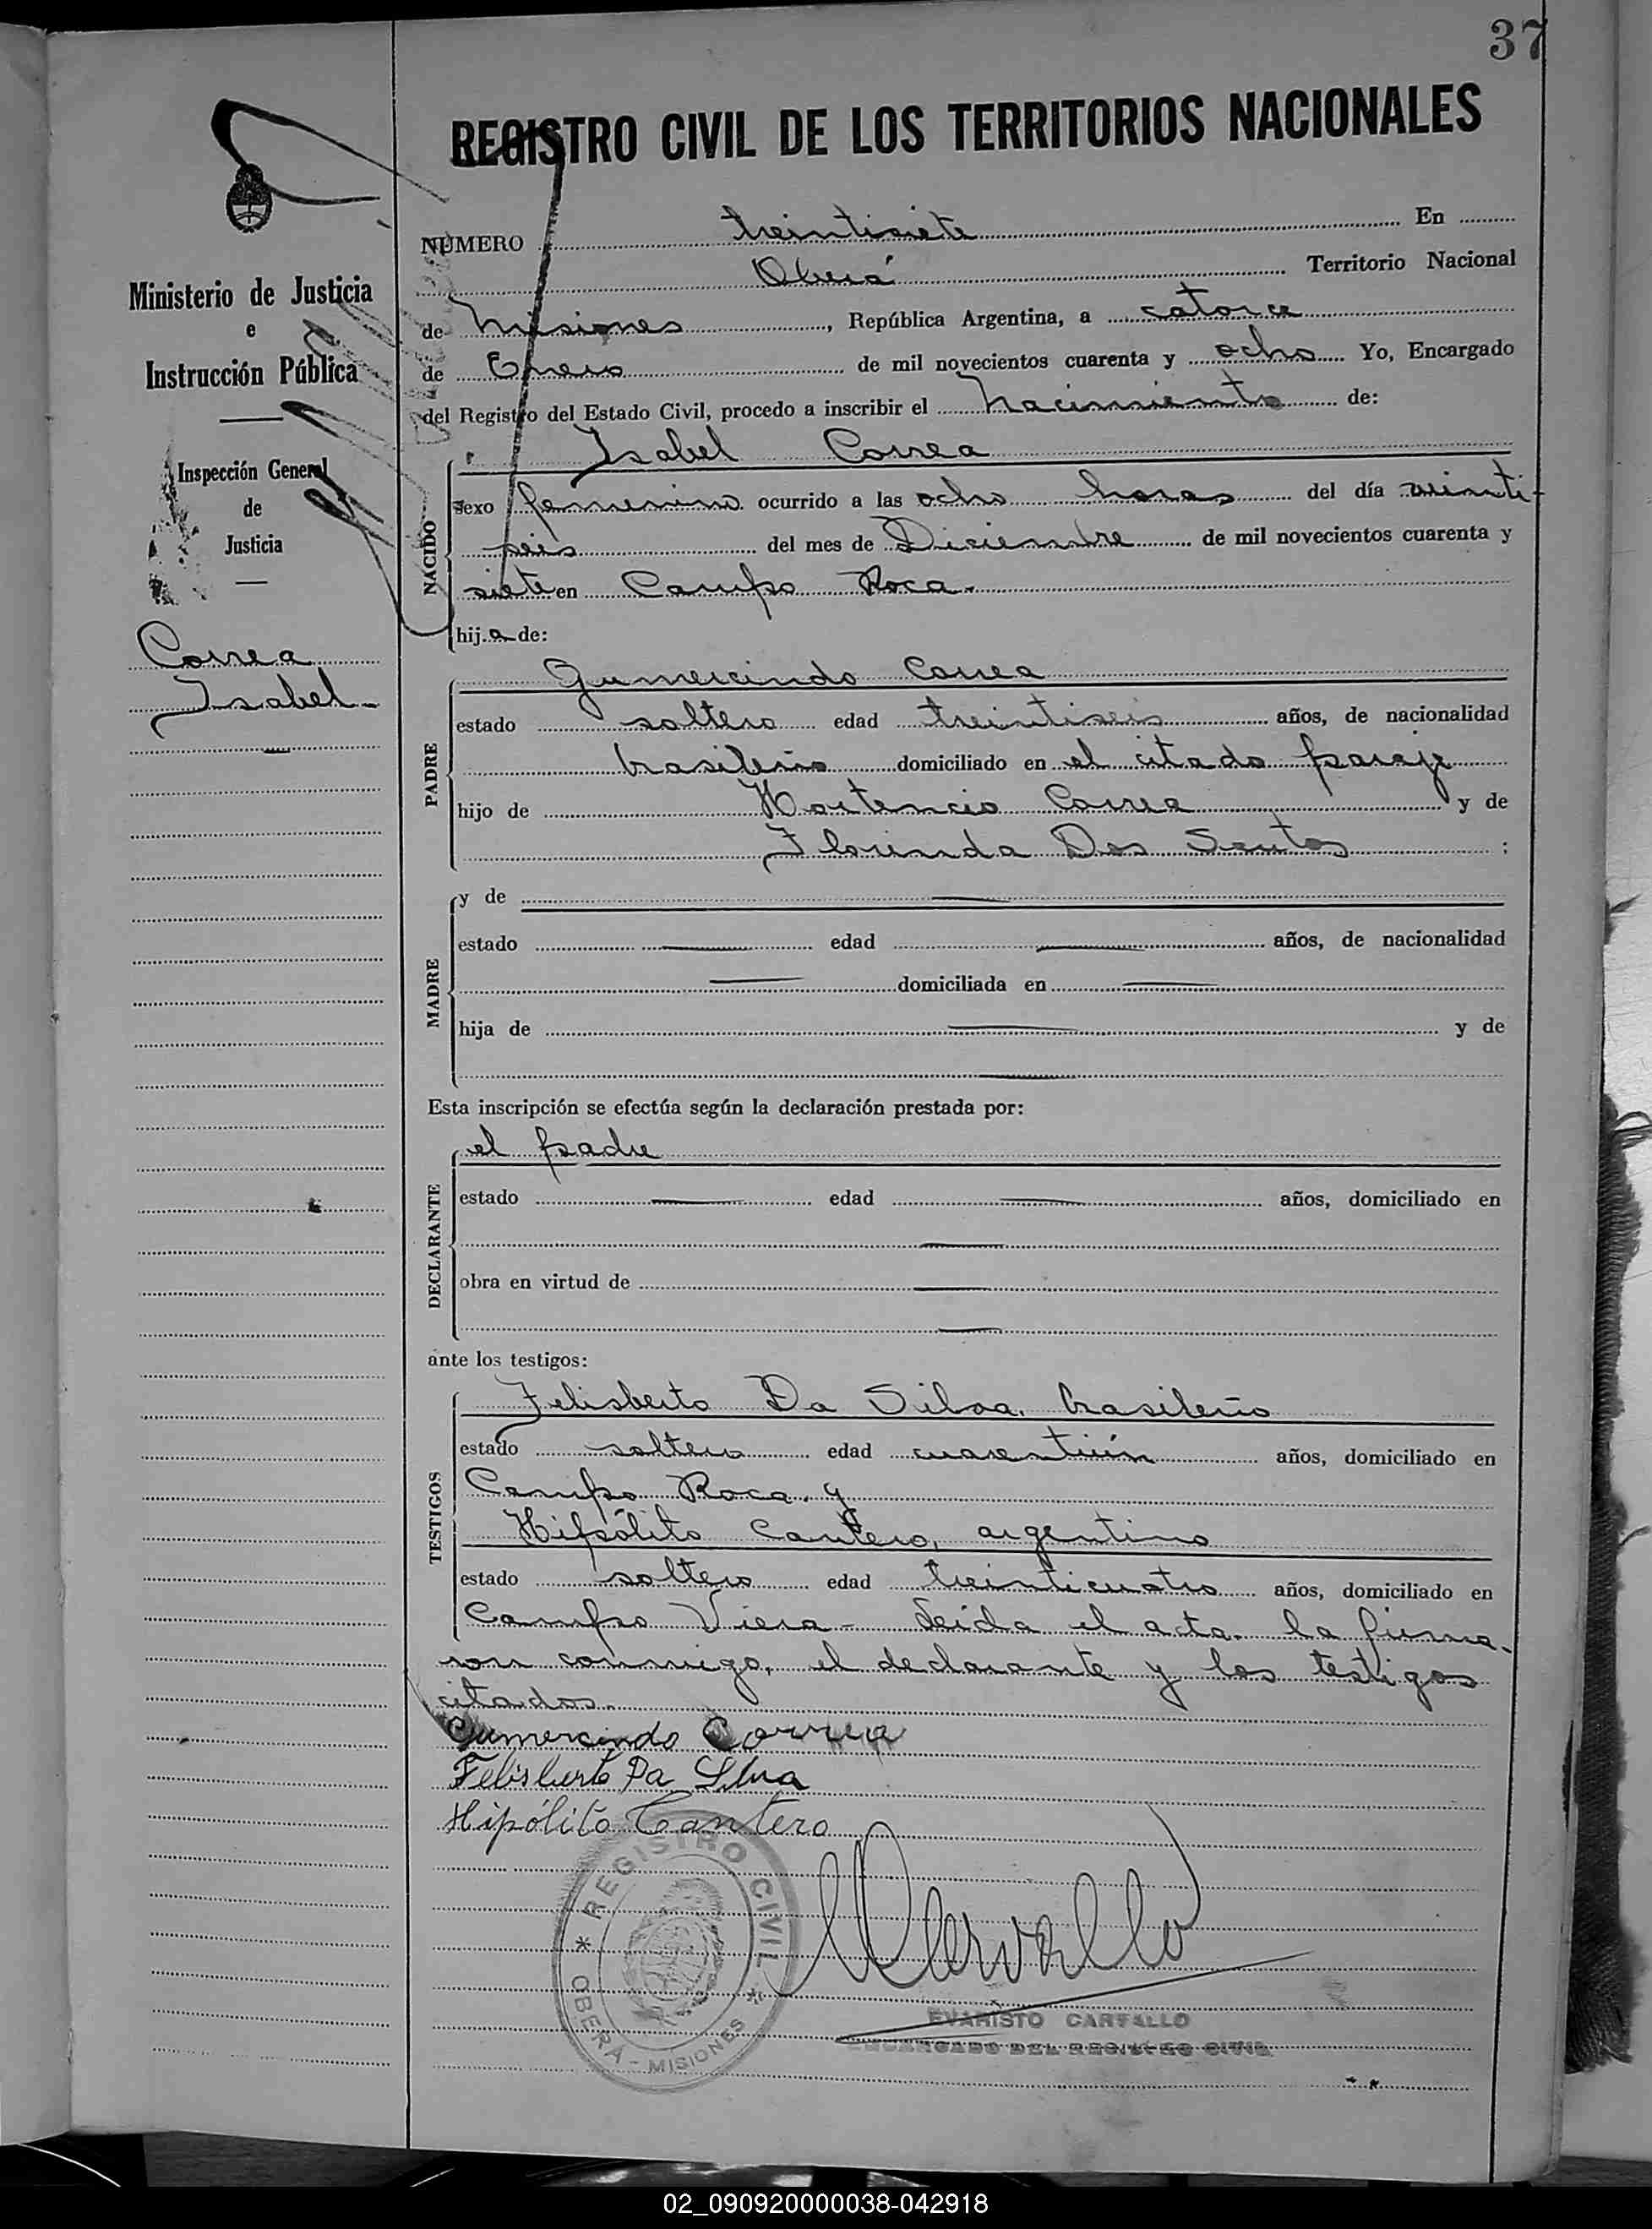 37
REGISTRO CIVIL DE LOS TERRITORIOS NACIONALES
Ministerio de Justicia
e
Instrucción Pública
Inspección General
de
Justicia
Correa
Isabel
NUMERO treintisiete En
Oberá Territorio Nacional
de Misiones, República Argentina, a catorce
de Enero de mil novecientos cuarenta y ocho Yo, Encargado
del Registro del Estado Civil, procedo a inscribir el Nacimiento de:
Isabel Correa
NACIDO
sexo femenino ocurrido a las ocho horas del día veinti-
seis del mes de Diciembre de mil novecientos cuarenta y
siete en Campo Roca.
hija de:
PADRE
Gumercindo Correa
estado soltero edad treintiseis años, de nacionalidad
brasileño domiciliado en el citado paraje
hijo de Hortencio Correa y de
Florinda Dos Santos ;
MADRE
y de
estado edad años, de nacionalidad
domiciliada en
hija de y de
Esta inscripción se efectúa según la declaración prestada por:
DECLARANTE
el padre
estado edad años, domiciliado en
obra en virtud de
ante los testigos:
TESTIGOS
Felisberto Da Silva, brasileño
estado soltero edad cuarentiún años, domiciliado en
Campo Roca, y
Hipólito Cantero, argentino
estado soltero edad treinticuatro años, domiciliado en
Campo Viera - Leida el acta, la firma-
ron conmigo, el declarante y los testigos
citados.
Gumercindo Correa
Felisberto Da Silva
Hipólito Cantero
REGISTRO CIVIL
OBERA - MISIONES
Carvallo
EVARISTO CARVALLO
ENCARGADO DEL REGISTRO CIVIL
02_090920000038-042918